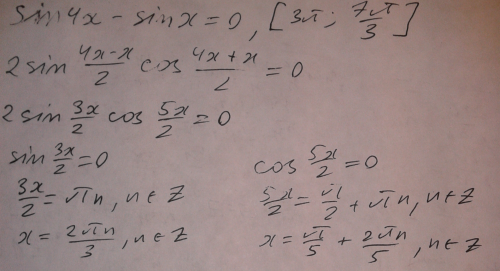 sin4x - sinx = 0, [3π; 7π/3]
2 sin (4x-x)/2 cos (4x+x)/2 = 0
2 sin 3x/2 cos 5x/2 = 0
sin 3x/2 = 0
3x/2 = πn, n∈Z
x = 2πn/3, n∈Z
cos 5x/2 = 0
5x/2 = π/2 + πn, n∈Z
x = π/5 + 2πn/5, n∈Z